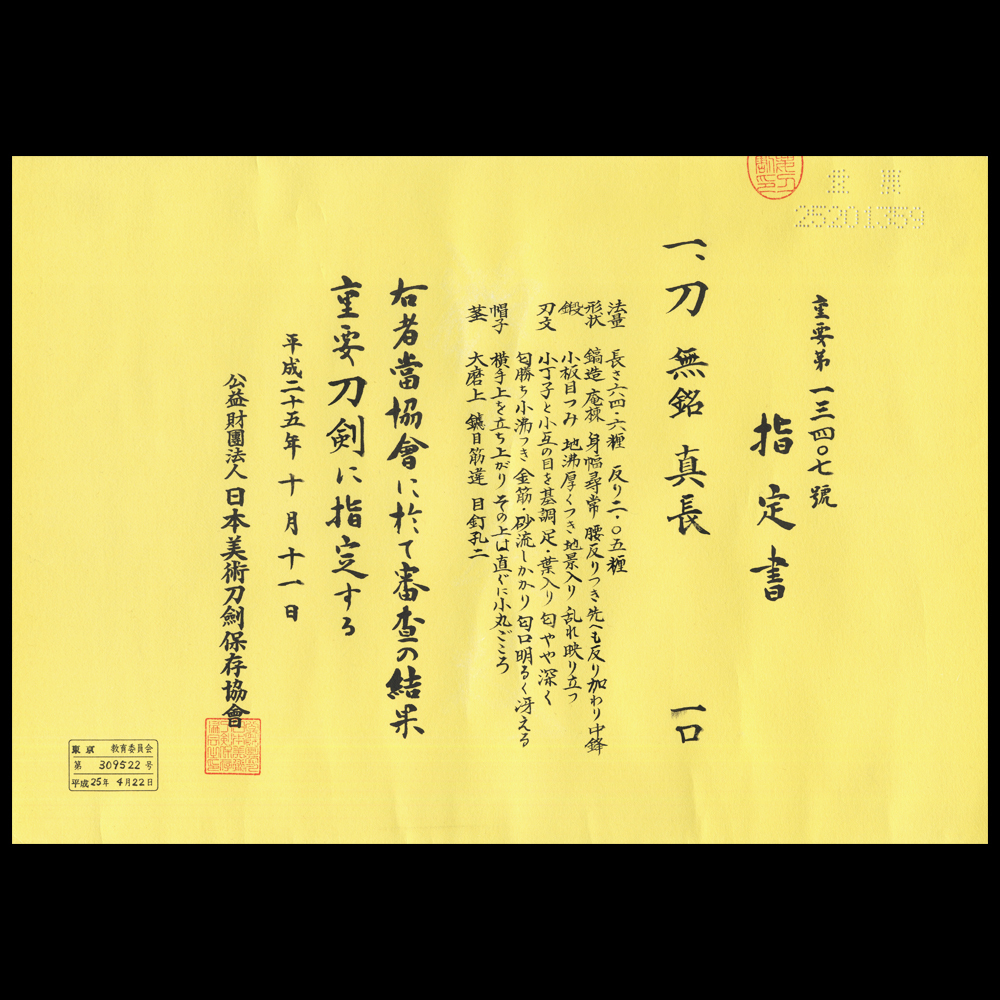 重要
25201359
重要第一三四〇七號
指定書
一、刀 無銘 真長 一口
法量 長さ六四・六糎 反り二・〇五糎
形状 鎬造 庵棟 身幅尋常 腰反りつき先へも反り加わり中鋒
鍛 小板目つみ 地沸厚くつき地景入り 乱れ映り立つ
刃文 小丁子と小互の目を基調 足・葉入り 匂やや深く
匂勝ち小沸つき 金筋・砂流しかかり 匂口明るく冴える
帽子 横手上を立ち上がり その上は直ぐに小丸ごころ
茎 大磨上 鑢目筋違 目釘孔二
右者當協會に於て審査の結果
重要刀剣に指定する
平成二十五年 十月十一日
公益財團法人日本美術刀劍保存協會
東京 教育委員会
第 309522 号
平成25年 4月22日